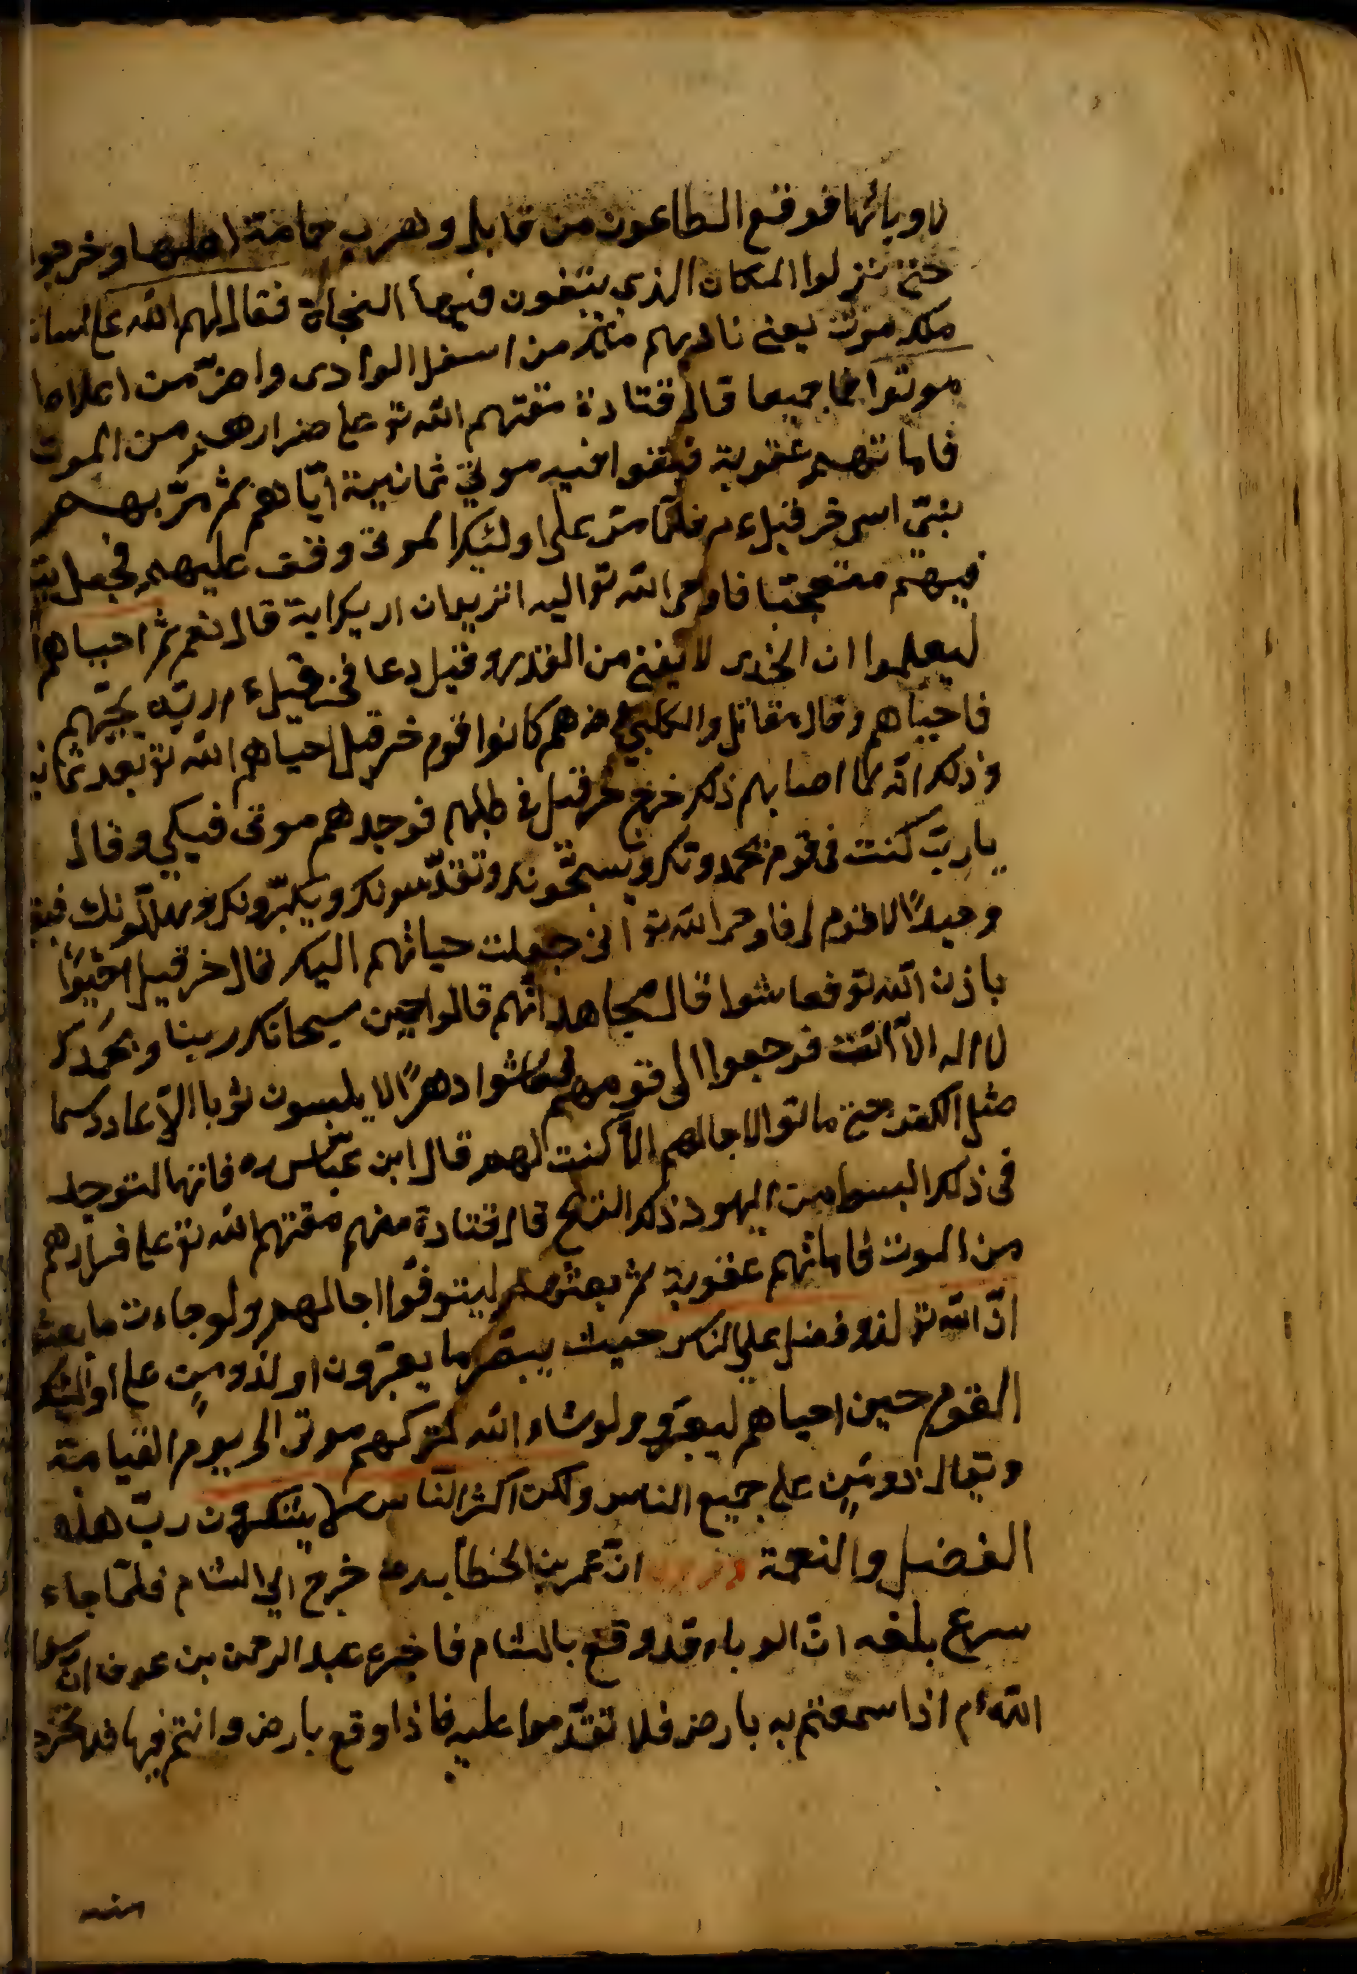 لاوبائها فوقع الطاعون من قابل وهرب عامة اهلها وخرجوا
حتى نزلوا المكان الذي يبتغون فيها النجاة فقال لهم الله على لسان
ملك موت يعني ناديهم ملك من اسفل الوادي واخر من اعلاها
موتوا فما جميعا قال قتادة مقتهم الله تع على فرارهم من الموت
فاماتهم عقوبة فبقوا فيه موتى ثمانية ايام ثم مر بهم
نبي اسمه خرقيل عم فلما مر على اولئك الموتى وقف عليهم فجعل
فيهم متعجبا فاوحى الله تع اليه اتريد ان اريك اية قال نعم ثم احياهم
ليعلموا ان الحذر لا يغني من القدر وقيل دعا خرقيل عم ربه يحييهم
فاحياهم وقال مقاتل والكلبي هم كانوا قوم خرقيل احياهم الله تع بعد ثمانية
وذلك انه لما اصابهم ذلك خرج خرقيل في طلبهم فوجدهم موتى فبكى وقال
يا رب كنت في قوم يحمدونك ويسبحونك وتقدسونك ويكبرونك ويهللونك فبقيت
وحيدًا لا قوم لي فاوحى الله تع اني جعلت حياتهم اليك قال خرقيل احيوا
باذن الله تع فعاشوا قال مجاهد انهم قالوا حين سبحانك ربنا وبحمدك
لا اله الا انت فرجعوا الى قومهم فعاشوا دهرًا لا يلبسون ثوبا الا عاد دسما
مثل الكفن حتى ماتوا لاجالهم الا كتبت لهم قال ابن عباس رضه فانها لتوجد
في ذلك البسط من اليهود ذلك الريح قال قتادة منهم مقتهم الله تع على فرارهم
من الموت فاماتهم عقوبة ثم بعثهم ليتوفوا اجالهم ولو جاءت ما بعثوا
ان الله تع لذو فضل على الناس حيث يبصرهم ما يعتبرون او لذو من على اولئك
القوم حين احياهم ليعتبروا ولو شاء الله لتركهم موتى الى يوم القيامة
ويقال ذو من على جميع الناس ولكن اكثر الناس لا يشكرون رب هذه
الفضل والنعمة ان عمر بن الخطاب رضه خرج الى الشام فلما جاء
سرع بلغه ان الوباء قد وقع بالشام فاخبره عبد الرحمن بن عوف ان رسول
الله عم اذا سمعتم به بارض فلا تقدموا عليه فاذا وقع بارض وانتم فيها فلا تخرجوا
منه